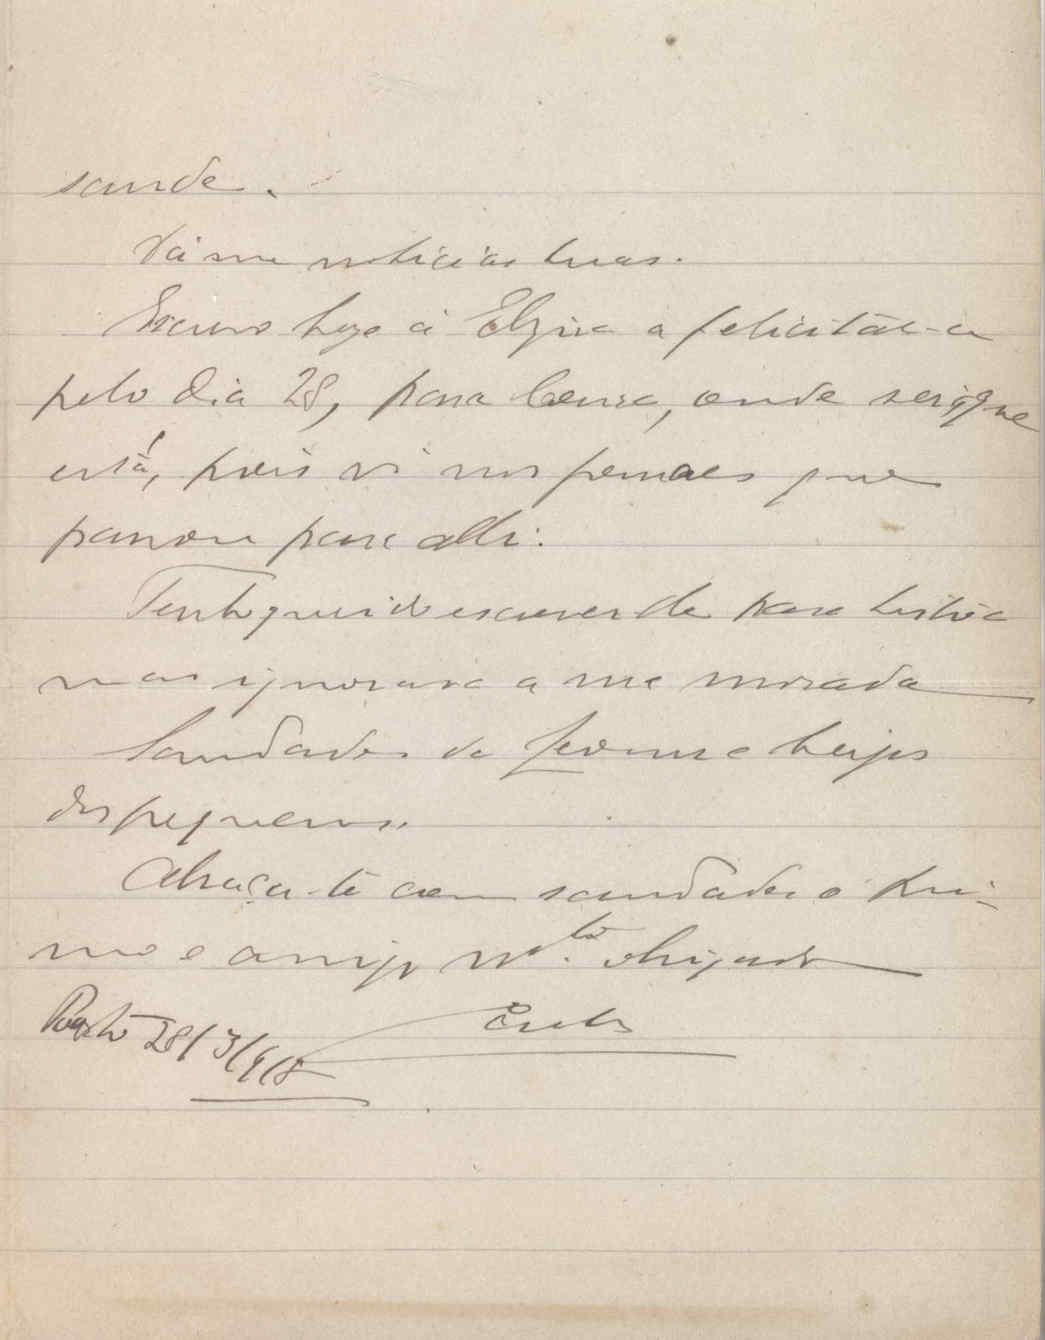 saude.
Dá-me noticias tuas.
Escrevo hoje á Elzira a felicital-a
pelo dia 28, para onde sei que
está, pois vi nos jornaes que
para alli.
Tenho querido escrever-te para Lisbôa
mas ignorava a morada
Saudades da e beijos
dos pequenos.
Abraça-te com saudades o pri-
mo e amigo m.to obrigado
Porto 28/3/918